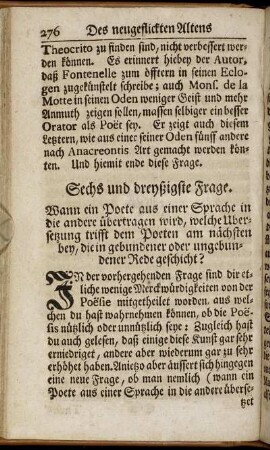 276 Des neugeflickten Altens
Theocrito zu finden sind, nicht verbessert wer-
den können. Es erinnert hiebey der Autor,
daß Fontenelle zum öfftern in seinen Eclo-
gen zugekünstelt schreibe; auch Mons. de la
Motte in seinen Oden weniger Geist und mehr
Anmuth zeigen sollen, massen selbiger ein besser
Orator als Poët sey. Er zeigt auch diesem
Letztern, wie aus einer seiner Oden fünff andere
nach Anacreontis Art gemacht werden kön-
ten. Und hiemit ende diese Frage.
Sechs und dreyßigste Frage.
Wann ein Poete aus einer Sprache in
die andere übertragen wird, welche Uber-
setzung trifft dem Poeten am nächsten
bey, die in gebundener oder ungebun-
dener Rede geschicht?
IN der vorhergehenden Frage sind dir et-
liche wenige Merckwürdigkeiten von der
Poësie mitgetheilet worden, aus wel-
chen du hast wahrnehmen können, ob die Poë-
sis nützlich oder unnützlich seye: Zugleich hast
du auch gelesen, daß einige diese Kunst gar sehr
erniedriget, andere aber wiederum gar zu sehr
erhöhet haben. Anietzo aber äussert sich hingegen
eine neue Frage, ob man nemlich (wann ein
Poete aus einer Sprache in die andere überse-
tzet